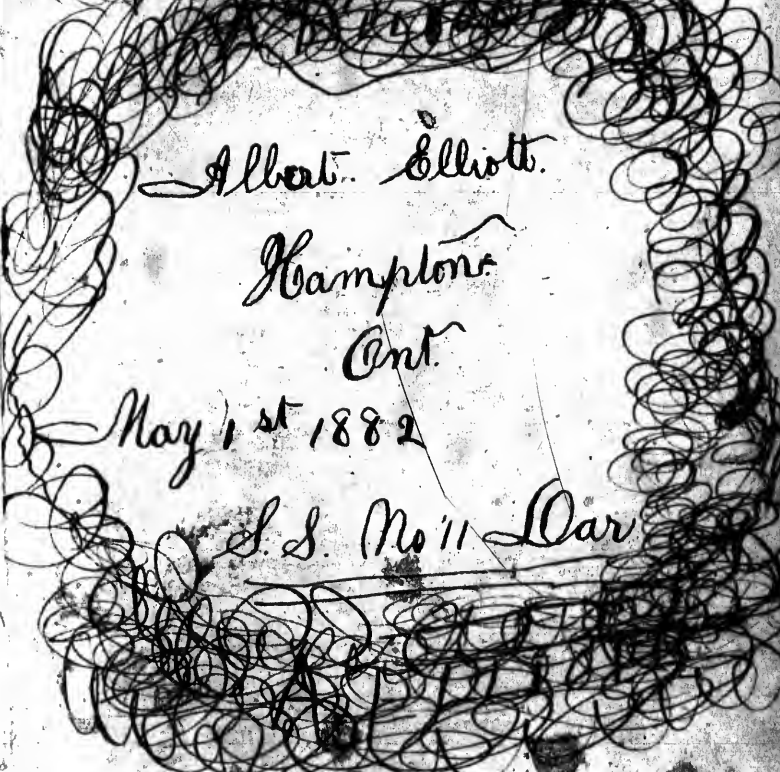 Albert. Elliott.
Hampton.
Ont.
May 1st 1882
S. S. No 11 Dar